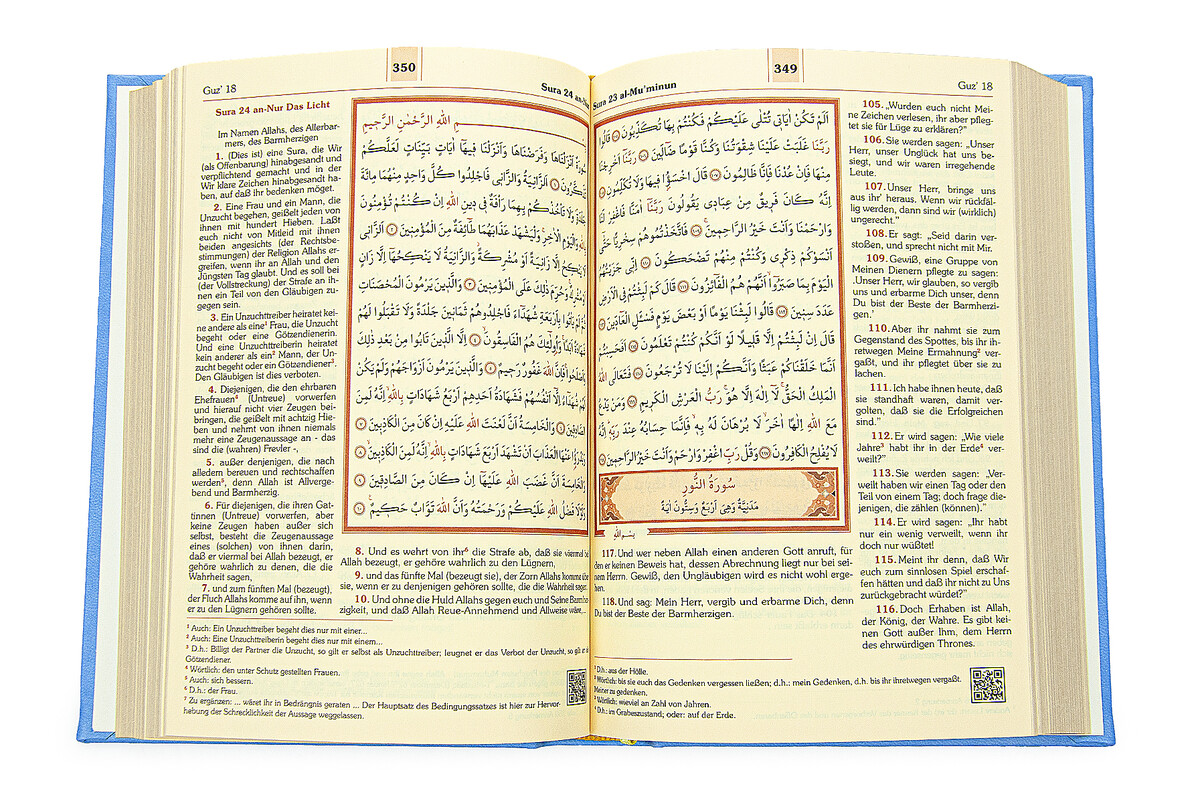 349
Sura 23 al-Mu'minun
Guz' 18
اَلَمْ تَكُنْ اٰيَاتٖى تُتْلٰى عَلَيْكُمْ فَكُنْتُمْ بِهَا تُكَذِّبُونَ ﴿١٠٥﴾ قَالُوا
رَبَّنَا غَلَبَتْ عَلَيْنَا شِقْوَتُنَا وَكُنَّا قَوْمًا ضَٓالّٖينَ ﴿١٠٦﴾ رَبَّنَٓا اَخْرِجْنَا
مِنْهَا فَاِنْ عُدْنَا فَاِنَّا ظَالِمُونَ ﴿١٠٧﴾ قَالَ اخْسَؤُ۫ا فٖيهَا وَلَا تُكَلِّمُونِ ﴿١٠٨﴾
اِنَّهُ كَانَ فَرٖيقٌ مِنْ عِبَادٖى يَقُولُونَ رَبَّنَٓا اٰمَنَّا فَاغْفِرْ لَنَا
وَارْحَمْنَا وَاَنْتَ خَيْرُ الرَّاحِمٖينَ ﴿١٠٩﴾ فَاتَّخَذْتُمُوهُمْ سِخْرِيًّا حَتّٰٓى
اَنْسَوْكُمْ ذِكْرٖى وَكُنْتُمْ مِنْهُمْ تَضْحَكُونَ ﴿١١٠﴾ اِنّٖى جَزَيْتُهُمُ
الْيَوْمَ بِمَا صَبَرُٓوا اَنَّهُمْ هُمُ الْفَٓائِزُونَ ﴿١١١﴾ قَالَ كَمْ لَبِثْتُمْ فِى الْاَرْضِ
عَدَدَ سِنٖينَ ﴿١١٢﴾ قَالُوا لَبِثْنَا يَوْمًا اَوْ بَعْضَ يَوْمٍ فَسْـَٔلِ الْعَٓادّٖينَ ﴿١١٣﴾
قَالَ اِنْ لَبِثْتُمْ اِلَّا قَلٖيلًا لَوْ اَنَّكُمْ كُنْتُمْ تَعْلَمُونَ ﴿١١٤﴾ اَفَحَسِبْتُمْ
اَنَّمَا خَلَقْنَاكُمْ عَبَثًا وَاَنَّكُمْ اِلَيْنَا لَا تُرْجَعُونَ ﴿١١٥﴾ فَتَعَالَى اللّٰهُ
الْمَلِكُ الْحَقُّ لَٓا اِلٰهَ اِلَّا هُوَ رَبُّ الْعَرْشِ الْكَرٖيمِ ﴿١١٦﴾ وَمَنْ يَدْعُ
مَعَ اللّٰهِ اِلٰهًا اٰخَرَ لَا بُرْهَانَ لَهُ بِهٖ فَاِنَّمَا حِسَابُهُ عِنْدَ رَبِّهٖ اِنَّهُ
لَا يُفْلِحُ الْكَافِرُونَ ﴿١١٧﴾ وَقُلْ رَبِّ اغْفِرْ وَارْحَمْ وَاَنْتَ خَيْرُ الرَّاحِمٖينَ ﴿١١٨﴾
سُورَةُ النُّورِ
مَدَنِيَّةٌ وَهِىَ اَرْبَعٌ وَسِتُّونَ اٰيَةً
105. „Wurden euch nicht Mei-
ne Zeichen verlesen, ihr aber pfleg-
tet sie für Lüge zu erklären?“
106. Sie werden sagen: „Unser
Herr, unser Unglück hat uns be-
siegt, und wir waren irregehende
Leute.
107. Unser Herr, bringe uns
aus ihr¹ heraus. Wenn wir rückfäl-
lig werden, dann sind wir (wirklich)
ungerecht.“
108. Er sagt: „Seid darin ver-
stoßen, und sprecht nicht mit Mir.
109. Gewiß, eine Gruppe von
Meinen Dienern pflegte zu sagen:
‚Unser Herr, wir glauben, so vergib
uns und erbarme Dich unser, denn
Du bist der Beste der Barmherzi-
gen.‘
110. Aber ihr nahmt sie zum
Gegenstand des Spottes, bis ihr ih-
retwegen Meine Ermahnung² ver-
gaßt, und ihr pflegtet über sie zu
lachen.
111. Ich habe ihnen heute, daß
sie standhaft waren, damit ver-
golten, daß sie die Erfolgreichen
sind.“
112. Er wird sagen: „Wie viele
Jahre³ habt ihr in der Erde⁴ ver-
weilt?“
113. Sie werden sagen: „Ver-
weilt haben wir einen Tag oder den
Teil von einem Tag; doch frage die-
jenigen, die zählen (können).“
114. Er wird sagen: „Ihr habt
nur ein wenig verweilt, wenn ihr
doch nur wüßtet!
115. Meint ihr denn, daß Wir
euch zum sinnlosen Spiel erschaf-
fen hätten und daß ihr nicht zu Uns
zurückgebracht würdet?“
116. Doch Erhaben ist Allah,
der König, der Wahre. Es gibt kei-
nen Gott außer Ihm, dem Herrn
des ehrwürdigen Thrones.
117. Und wer neben Allah einen anderen Gott anruft, für
den er keinen Beweis hat, dessen Abrechnung liegt nur bei sei-
nem Herrn. Gewiß, den Ungläubigen wird es nicht wohl erge-
hen.
118. Und sag: Mein Herr, vergib und erbarme Dich, denn
Du bist der Beste der Barmherzigen.
¹ D.h.: aus der Hölle.
² Wörtlich: bis sie euch das Gedenken vergessen ließen; d.h.: mein Gedenken, d.h. bis ihr ihretwegen vergaßt,
Meiner zu gedenken.
³ Wörtlich: wieviel an Zahl von Jahren.
⁴ D.h.: im Grabeszustand; oder: auf der Erde.
350
Guz' 18
Sura 24 an-Nur
Sura 24 an-Nur Das Licht
Im Namen Allahs, des Allerbar-
mers, des Barmherzigen
1. (Dies ist) eine Sura, die Wir
(als Offenbarung) hinabgesandt und
verpflichtend gemacht und in der
Wir klare Zeichen hinabgesandt ha-
ben, auf daß ihr bedenken möget.
2. Eine Frau und ein Mann, die
Unzucht begehen, geißelt jeden von
ihnen mit hundert Hieben. Laßt
euch nicht von Mitleid mit ihnen
beiden angesichts (der Rechtsbe-
stimmungen) der Religion Allahs er-
greifen, wenn ihr an Allah und den
Jüngsten Tag glaubt. Und es soll bei
(der Vollstreckung) der Strafe an ih-
nen ein Teil von den Gläubigen zu-
gegen sein.
3. Ein Unzuchttreiber heiratet kei-
ne andere als eine¹ Frau, die Unzucht
begeht oder eine Götzendienerin.
Und eine Unzuchttreiberin heiratet
kein anderer als ein² Mann, der Un-
zucht begeht oder ein Götzendiener³.
Den Gläubigen ist dies verboten.
4. Diejenigen, die den ehrbaren
Ehefrauen⁴ (Untreue) vorwerfen
und hierauf nicht vier Zeugen bei-
bringen, die geißelt mit achtzig Hie-
ben und nehmt von ihnen niemals
mehr eine Zeugenaussage an - das
sind die (wahren) Frevler -,
5. außer denjenigen, die nach
alledem bereuen und rechtschaffen
werden⁵, denn Allah ist Allverge-
bend und Barmherzig.
6. Für diejenigen, die ihren Gat-
tinnen (Untreue) vorwerfen, aber
keine Zeugen haben außer sich
selbst, besteht die Zeugenaussage
eines (solchen) von ihnen darin,
daß er viermal bei Allah bezeugt, er
gehöre wahrlich zu denen, die die
Wahrheit sagen,
7. und zum fünften Mal (bezeugt),
der Fluch Allahs komme auf ihn, wenn
er zu den Lügnern gehören sollte.
اللّٰهِ الرَّحْمٰنِ الرَّحٖيمِ
سُورَةٌ اَنْزَلْنَاهَا وَفَرَضْنَاهَا وَاَنْزَلْنَا فٖيهَٓا اٰيَاتٍ بَيِّنَاتٍ لَعَلَّكُمْ
تَذَكَّرُونَ ﴿١﴾ اَلزَّانِيَةُ وَالزَّانٖى فَاجْلِدُوا كُلَّ وَاحِدٍ مِنْهُمَا مِائَةَ
جَلْدَةٍ وَلَا تَأْخُذْكُمْ بِهِمَا رَأْفَةٌ فٖى دٖينِ اللّٰهِ اِنْ كُنْتُمْ تُؤْمِنُونَ
بِاللّٰهِ وَالْيَوْمِ الْاٰخِرِ وَلْيَشْهَدْ عَذَابَهُمَا طَٓائِفَةٌ مِنَ الْمُؤْمِنٖينَ ﴿٢﴾ اَلزَّانٖى
لَا يَنْكِحُ اِلَّا زَانِيَةً اَوْ مُشْرِكَةً وَالزَّانِيَةُ لَا يَنْكِحُهَٓا اِلَّا زَانٍ
اَوْ مُشْرِكٌ وَحُرِّمَ ذٰلِكَ عَلَى الْمُؤْمِنٖينَ ﴿٣﴾ وَالَّذٖينَ يَرْمُونَ الْمُحْصَنَاتِ
ثُمَّ لَمْ يَأْتُوا بِاَرْبَعَةِ شُهَدَٓاءَ فَاجْلِدُوهُمْ ثَمَانٖينَ جَلْدَةً وَلَا تَقْبَلُوا لَهُمْ
شَهَادَةً اَبَدًا وَاُو۬لٰٓئِكَ هُمُ الْفَاسِقُونَ ﴿٤﴾ اِلَّا الَّذٖينَ تَابُوا مِنْ بَعْدِ ذٰلِكَ
وَاَصْلَحُوا فَاِنَّ اللّٰهَ غَفُورٌ رَحٖيمٌ ﴿٥﴾ وَالَّذٖينَ يَرْمُونَ اَزْوَاجَهُمْ وَلَمْ يَكُنْ
لَهُمْ شُهَدَٓاءُ اِلَّٓا اَنْفُسُهُمْ فَشَهَادَةُ اَحَدِهِمْ اَرْبَعُ شَهَادَاتٍ بِاللّٰهِ اِنَّهُ لَمِنَ
الصَّادِقٖينَ ﴿٦﴾ وَالْخَامِسَةُ اَنَّ لَعْنَتَ اللّٰهِ عَلَيْهِ اِنْ كَانَ مِنَ الْكَاذِبٖينَ ﴿٧﴾
وَيَدْرَؤُ۬ا عَنْهَا الْعَذَابَ اَنْ تَشْهَدَ اَرْبَعَ شَهَادَاتٍ بِاللّٰهِ اِنَّهُ لَمِنَ الْكَاذِبٖينَ ﴿٨﴾
وَالْخَامِسَةَ اَنَّ غَضَبَ اللّٰهِ عَلَيْهَٓا اِنْ كَانَ مِنَ الصَّادِقٖينَ ﴿٩﴾
وَلَوْلَا فَضْلُ اللّٰهِ عَلَيْكُمْ وَرَحْمَتُهُ وَاَنَّ اللّٰهَ تَوَّابٌ حَكٖيمٌ ﴿١٠﴾
8. Und es wehrt von ihr⁶ die Strafe ab, daß sie viermal bei
Allah bezeugt, er gehöre wahrlich zu den Lügnern,
9. und das fünfte Mal (bezeugt sie), der Zorn Allahs komme über
sie, wenn er zu denjenigen gehören sollte, die die Wahrheit sagen.
10. Und ohne die Huld Allahs gegen euch und Seine Barmher-
zigkeit, und daß Allah Reue-Annehmend und Allweise wäre,...
¹ Auch: Ein Unzuchttreiber begeht dies nur mit einer...
² Auch: Eine Unzuchttreiberin begeht dies nur mit einem...
³ D.h.: Billigt der Partner die Unzucht, so gilt er selbst als Unzuchttreiber; leugnet er das Verbot der Unzucht, so gilt er als
Götzendiener.
⁴ Wörtlich: den unter Schutz gestellten Frauen.
⁵ Auch: sich bessern.
⁶ D.h.: der Frau.
⁷ Zu ergänzen: ... wäret ihr in Bedrängnis geraten ... Der Hauptsatz des Bedingungssatzes ist hier zur Hervor-
hebung der Schrecklichkeit der Aussage weggelassen.